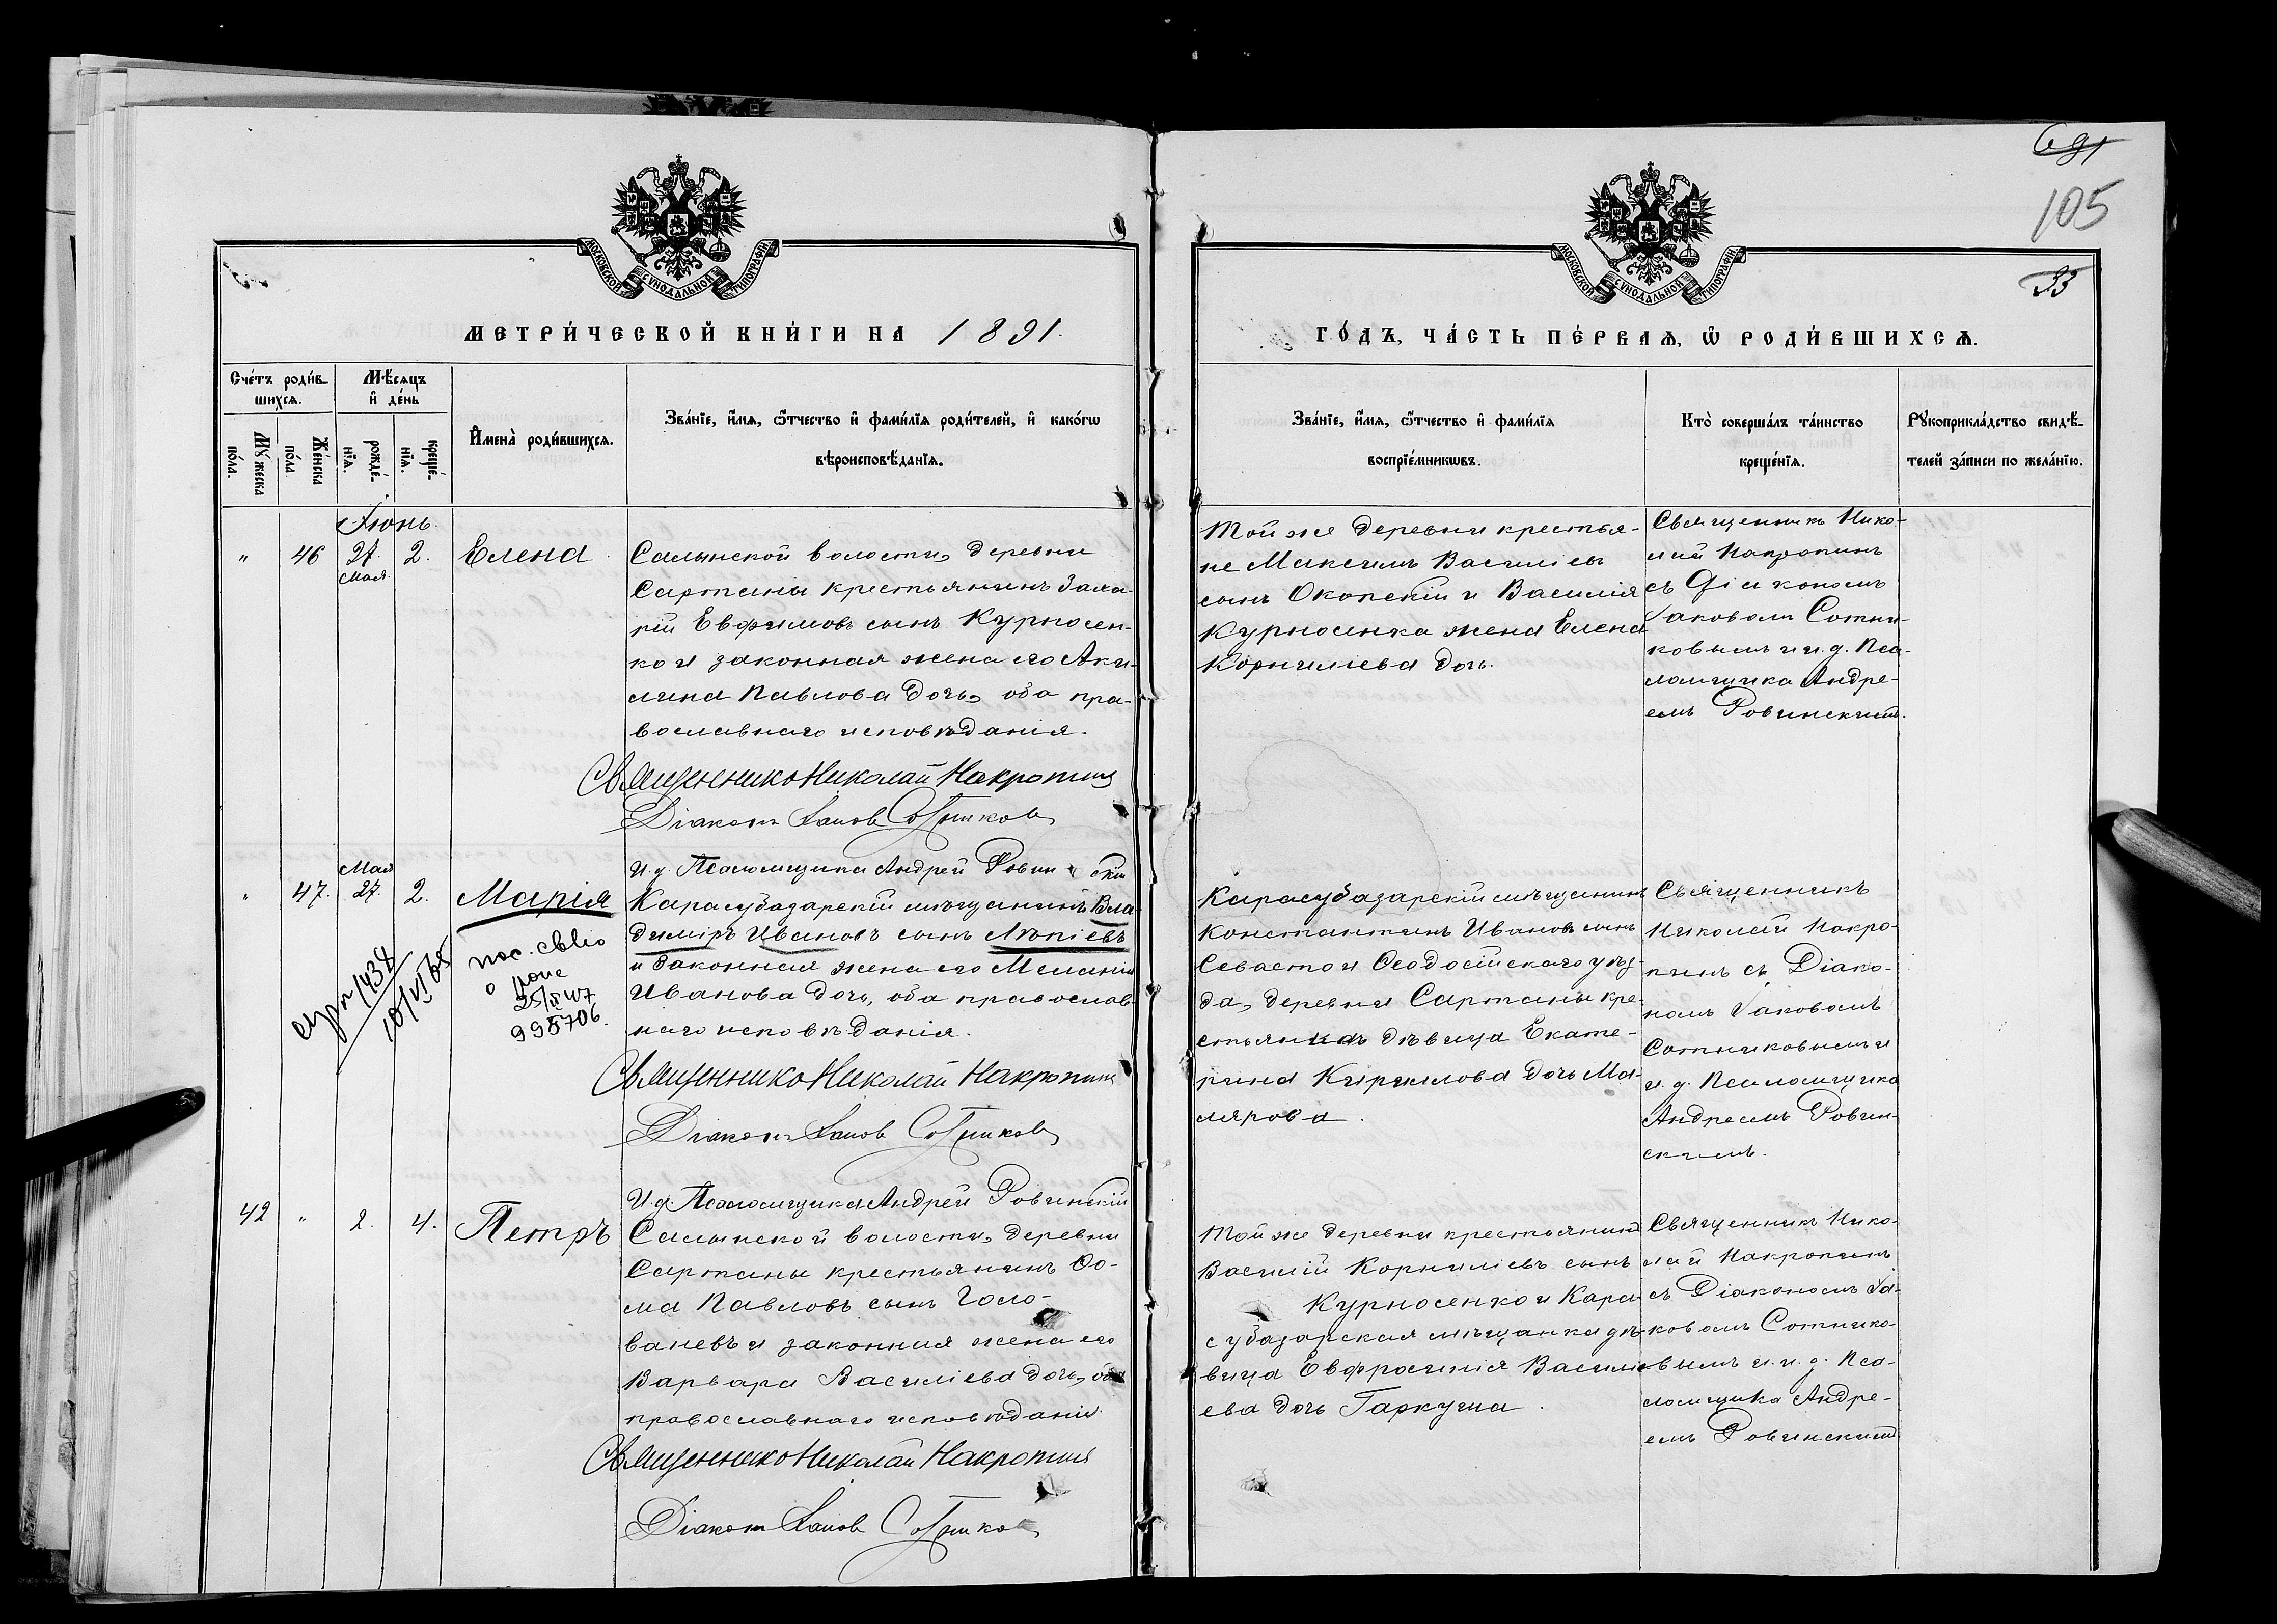 105
33
МОСКОВСКОЙ СѴНОДАЛЬНОЙ ТИПОГРАФІИ
МОСКОВСКОЙ СѴНОДАЛЬНОЙ ТИПОГРАФІИ
МЕТРИ́ЧЕСКОЙ КНИ́ГИ НА 1891.
ГО́ДЪ, ЧА́СТЬ ПЕ́РВАѦ, Ѡ҆ РОДИ́ВШИХСѦ.
Сче́тъ роди́в-
шихсѧ.
Мꙋ́жеска
по́ла.
Же́нска
по́ла
Мѣ́сѧцъ
и҆ де́нь
рожде́-
нїѧ.
креще́-
нїѧ.
И҆мена̀ роди́вшихсѧ.
Зва́нїе, и҆́мѧ, ѻ҆́тчество и҆ фами́лїѧ роди́телей, и҆ како́гѡ
вѣроисповѣ́данїѧ.
Зва́нїе, и҆́мѧ, ѻ҆́тчество и҆ фами́лїѧ
воспрїе́мникѡвъ.
Кто̀ соверша́лъ та́инство
креще́нїѧ.
Рꙋкоприкла́дство свидѣ́-
телей за́писи по жела́нїю.
Іюнь.
" 46 27. 2. Елена.
Мая.
Салынской волости, деревни
Сартаны крестьянинъ Заха-
рій Евфимовъ сынъ Курносен-
ко и законная жена его Аки-
лина Павлова дочь, оба пра-
вославнаго исповѣданія.
Священникъ Николай Накропинъ
Діаконъ Іаковъ Сотниковъ
И.д. Псаломщика Андрей Ровинскій
Той же деревни крестья-
не Максимъ Василіевъ
сынъ Окопскій и Василія
Курносенка жена Елена
Корниліева дочь.
Священникъ Нико-
лай Накропинъ
съ Діакономъ
Іаковомъ Сотни-
ковымъ и и.д. Пса-
ломщика Андре-
емъ Ровинскимъ.
Мая
" 47. 27. 2. Марія
10/VI 65
25/II 47
995706.
Карасубазарскій мѣщанинъ Вла-
диміръ Ивановъ сынъ
и законная жена его Меланія
Иванова дочь, оба православ-
наго исповѣданія.
Священникъ Николай Накропинъ
Діаконъ Іаковъ Сотниковъ
И.д. Псаломщика Андрей Ровинскій
Карасубазарскій мѣщанинъ
Константинъ Ивановъ сынъ
Севасто и Ѳеодосійскаго уѣз-
да, деревни Сартаны кре-
стьянка дѣвица Екате-
рина Кириллова дочь Ма-
лярова.
Священникъ
Николай Накро-
пинъ съ Діако-
номъ Іаковомъ
Сотниковымъ и
и.д. Псаломщика
Андреемъ Ровин-
скимъ.
42 " 2. 4. Петръ
Салынской волости, деревни
Сартаны крестьянинъ Ѳо-
ма Павловъ сынъ Голо-
ваневъ и законная жена его
Варвара Василіева дочь, оба
православнаго исповѣданія.
Священникъ Николай Накропинъ
Діаконъ Іаковъ Сотниковъ
Той же деревни крестьянинъ
Василій Корниліевъ сынъ
Курносенко и Кара-
субазарская мѣщанка дѣ-
вица Евфросинія Василі-
ева дочь Гаркуша.
Священникъ Нико-
лай Накропинъ
съ Діакономъ Іа-
ковомъ Сотнико-
вымъ и и.д. Пса-
ломщика Андре-
емъ Ровинскимъ